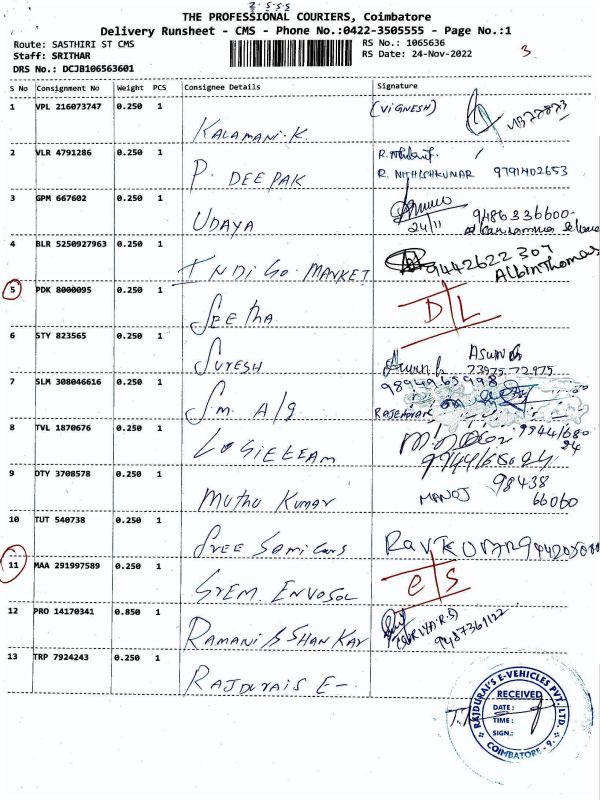 THE PROFESSIONAL COURIERS, Coimbatore
Delivery Runsheet - CMS - Phone No.:0422-3505555 - Page No.:1
Route: SASTHIRI ST CMS
Staff: SRITHAR
DRS No.: DCJB106563601
RS No.: 1065636
RS Date: 24-Nov-2022
3
S No Consignment No Weight PCS Consignee Details Signature
1 VPL 216073747 0.250 1 KALAMANI.K. (VIGNESH)
2 VLR 4791286 0.250 1 P. DEEPAK
R. NITHISHKUMAR 9791402653
3 GPM 667602 0.250 1 UDAYA
24/11 9486336600-
4 BLR 5250927963 0.250 1 INDIGO MARKET 9442622307
AlbinThomas
5 PDK 8000095 0.250 1 Seetha D/L
6 STY 823565 0.250 1 SURESH
73975 72975
7 SLM 308046616 0.250 1 Sm. A/g 9894965998
8 TVL 1870676 0.250 1
9 DTY 3708578 0.250 1 Muthu Kumar MANOJ 98438
66060
10 TUT 540738 0.250 1
11 MAA 291997589 0.250 1 GREM. ENVOSOL
12 PRO 14170341 0.850 1 RAMANI & SHANKAR
9487361122
13 TRP 7924243 0.250 1 RAJDURAIS E-
RAJDURAI'S E-VEHICLES PVT. LTD.
RECEIVED
DATE :
TIME :
SIGN.:
COIMBATORE - 9.